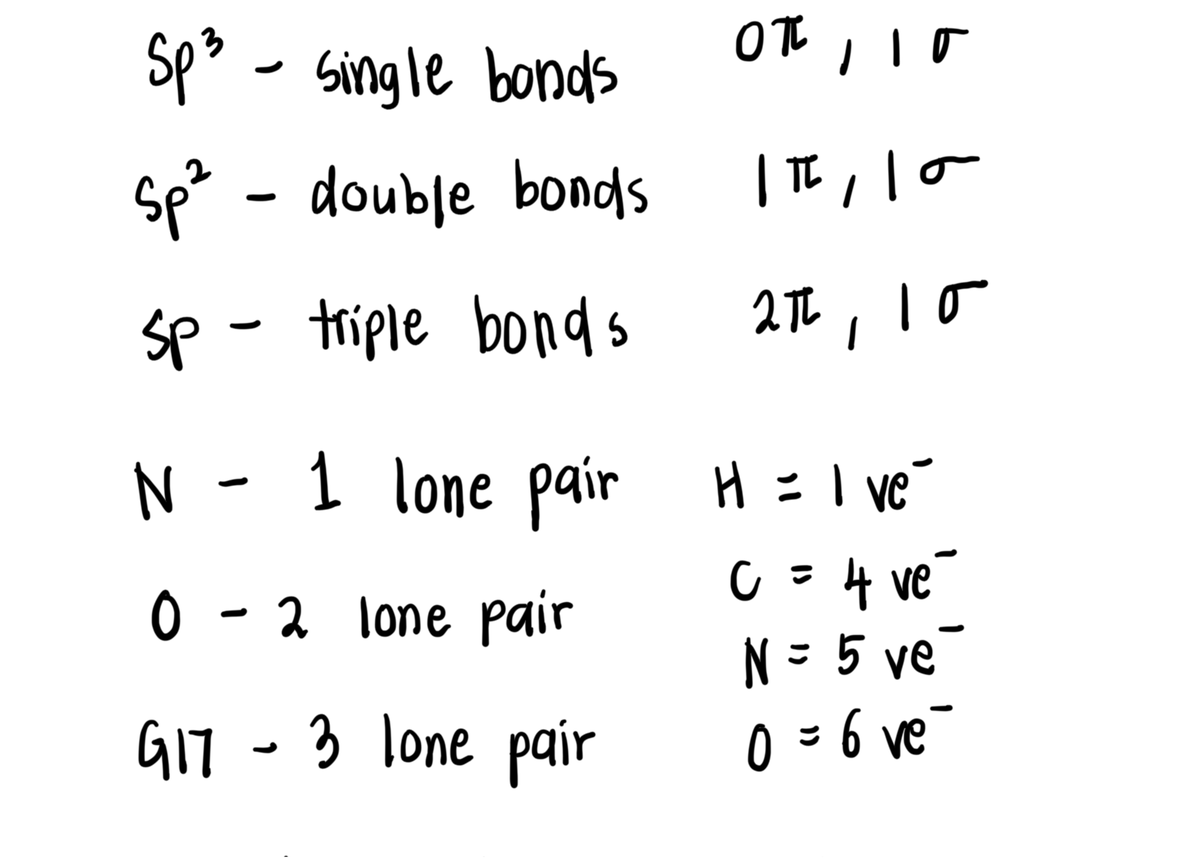 Sp³ - single bonds 0π, 1σ
Sp² - double bonds 1π, 1σ
Sp - triple bonds 2π, 1σ
N - 1 lone pair H = 1 ve⁻
C = 4 ve⁻
O - 2 lone pair
N = 5 ve⁻
G17 - 3 lone pair O = 6 ve⁻